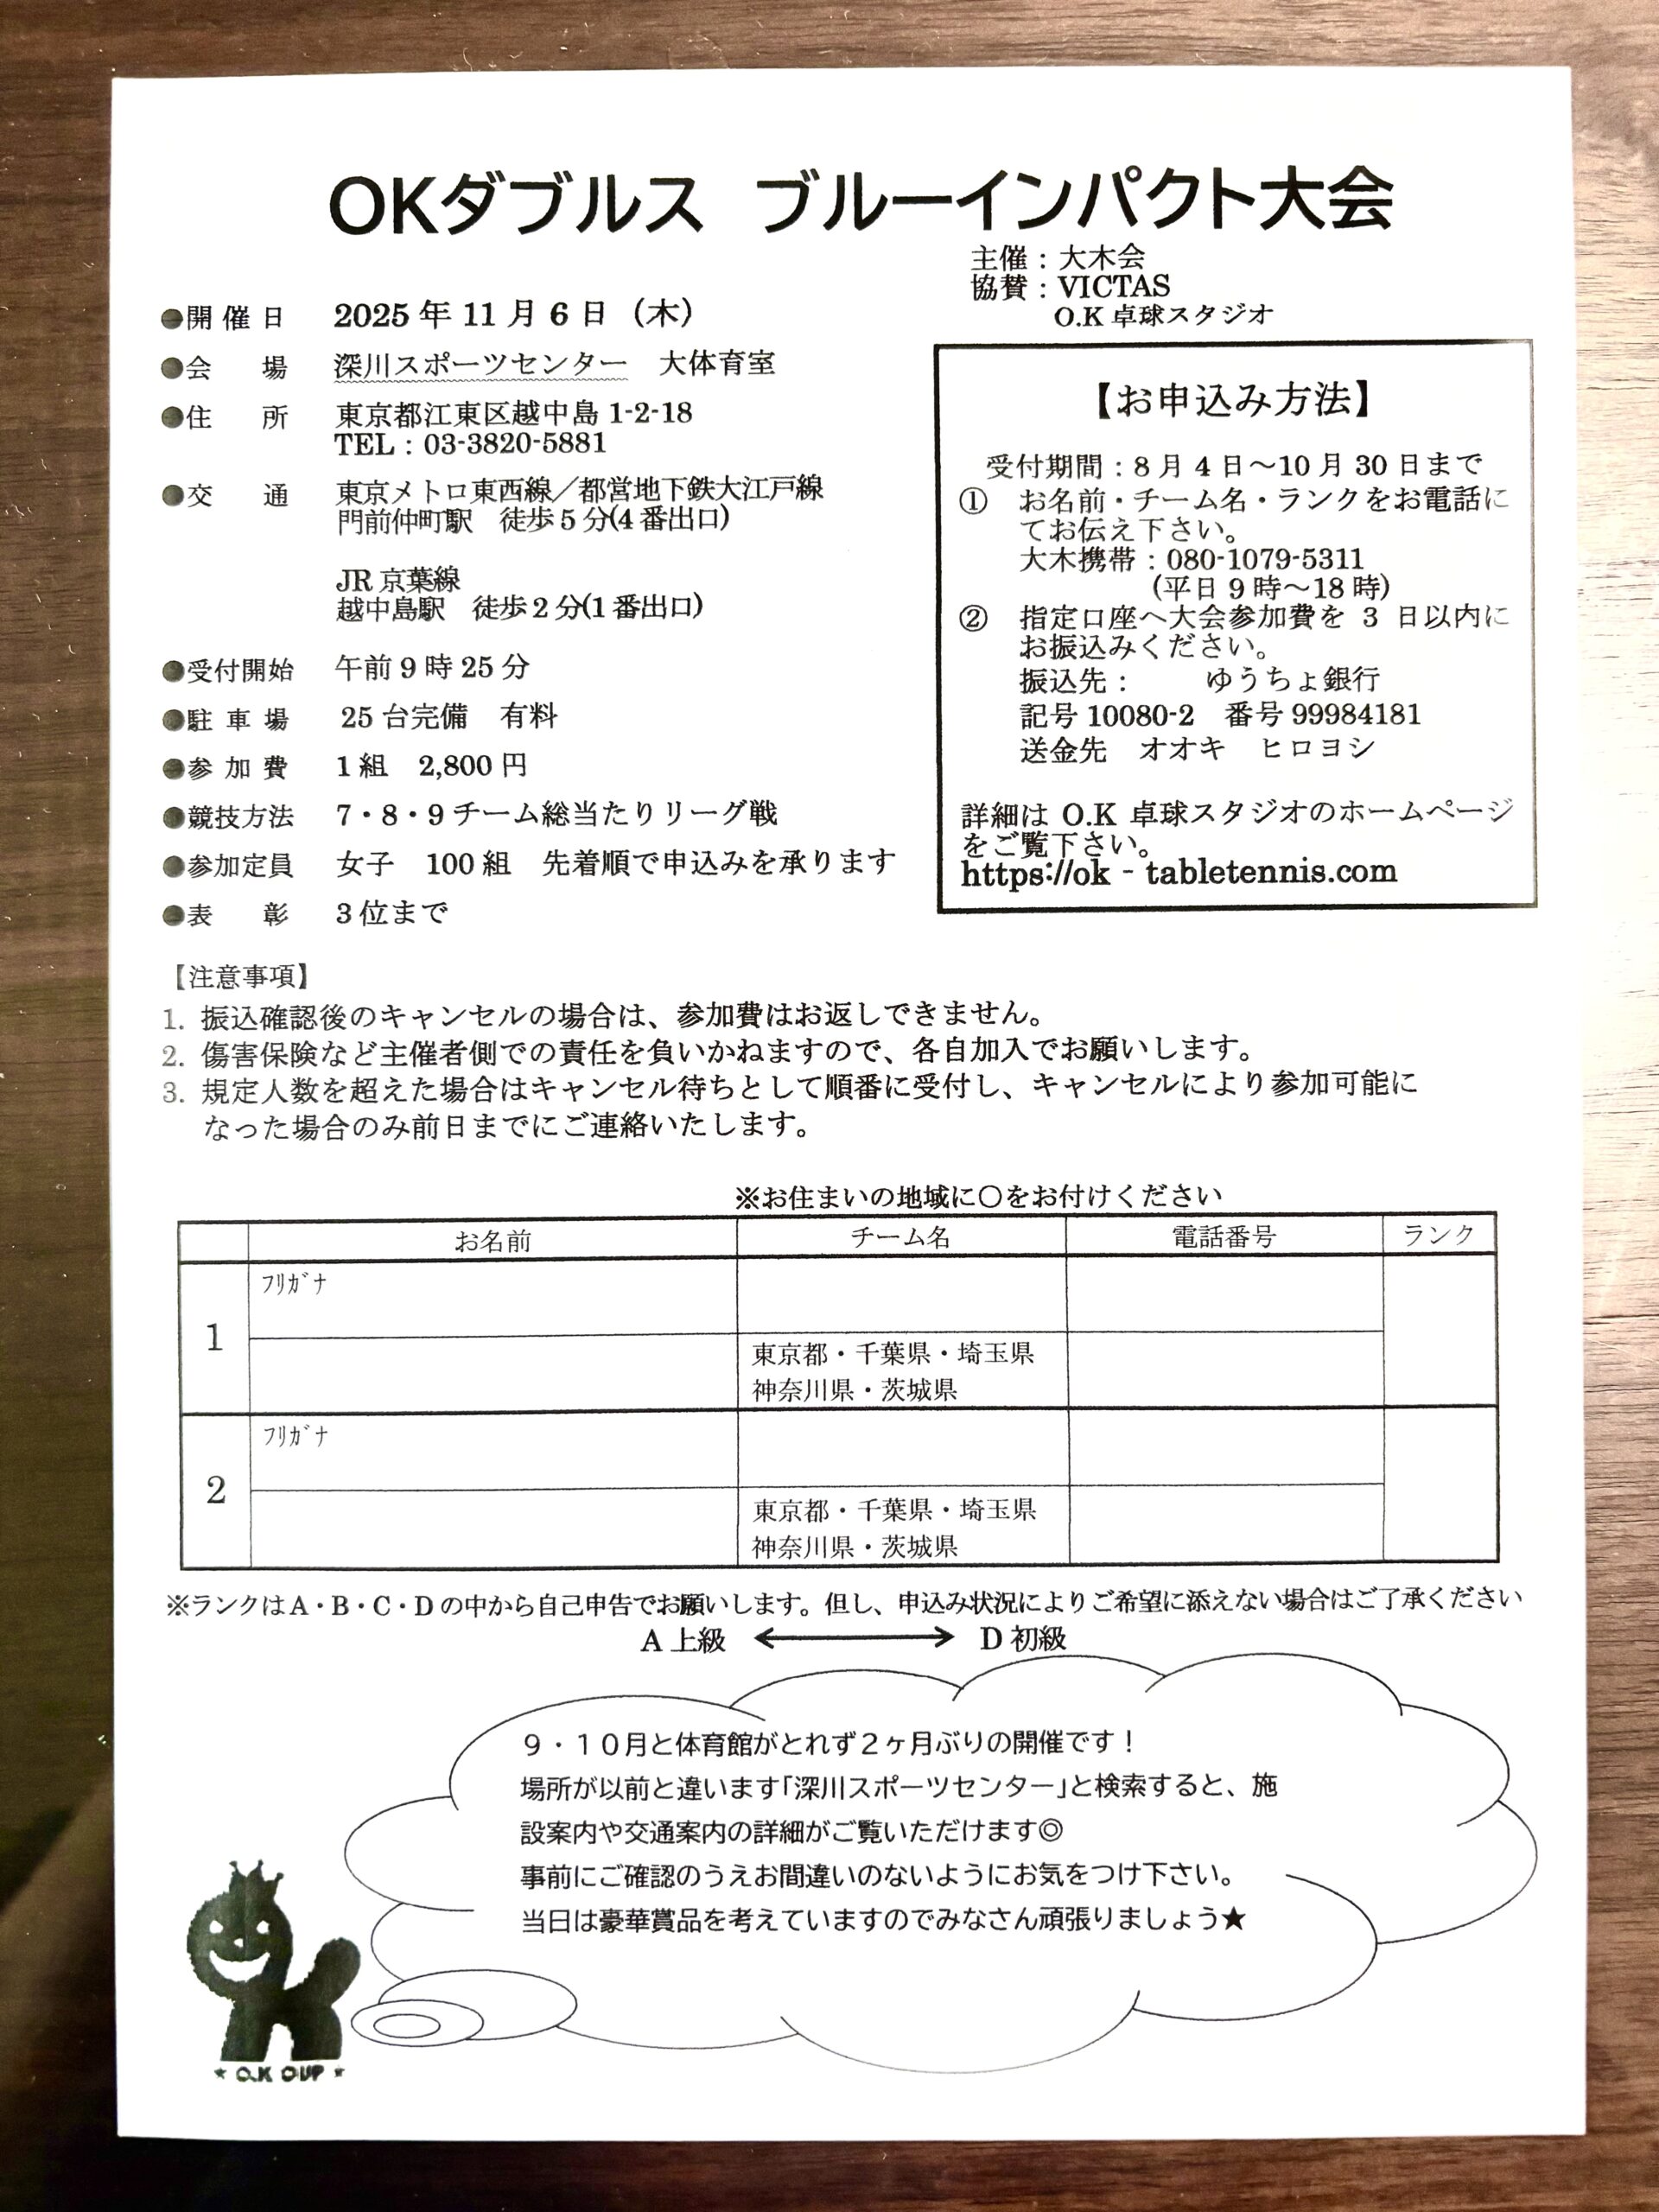 OKダブルス ブルーインパクト大会
主催：大木会
協賛：VICTAS
O.K 卓球スタジオ
●開催日 2025 年 11 月 6 日（木）
●会場 深川スポーツセンター 大体育室
●住所 東京都江東区越中島 1-2-18
TEL：03-3820-5881
●交通 東京メトロ東西線／都営地下鉄大江戸線
門前仲町駅 徒歩 5 分(4 番出口)
JR 京葉線
越中島駅 徒歩 2 分(1 番出口)
●受付開始 午前 9 時 25 分
●駐車場 25 台完備 有料
●参加費 1 組 2,800 円
●競技方法 7・8・9 チーム総当たりリーグ戦
●参加定員 女子 100 組 先着順で申込みを承ります
●表彰 3 位まで
【お申込み方法】
受付期間：8 月 4 日～10 月 30 日まで
① お名前・チーム名・ランクをお電話に
てお伝え下さい。
大木携帯：080-1079-5311
(平日 9 時～18 時)
② 指定口座へ大会参加費を 3 日以内に
お振込みください。
振込先： ゆうちょ銀行
記号 10080-2 番号 99984181
送金先 オオキ ヒロヨシ
詳細は O.K 卓球スタジオのホームページ
をご覧下さい。
https://ok - tabletennis.com
【注意事項】
1. 振込確認後のキャンセルの場合は、参加費はお返しできません。
2. 傷害保険など主催者側での責任を負いかねますので、各自加入でお願いします。
3. 規定人数を超えた場合はキャンセル待ちとして順番に受付し、キャンセルにより参加可能に
なった場合のみ前日までにご連絡いたします。
※お住まいの地域に〇をお付けください
お名前 チーム名 電話番号 ランク
1 ﾌﾘｶﾞﾅ
東京都・千葉県・埼玉県
神奈川県・茨城県
2 ﾌﾘｶﾞﾅ
東京都・千葉県・埼玉県
神奈川県・茨城県
※ランクは A・B・C・D の中から自己申告でお願いします。但し、申込み状況によりご希望に添えない場合はご了承ください
A 上級 ⟷ D 初級
９・１０月と体育館がとれず２ヶ月ぶりの開催です！
場所が以前と違います「深川スポーツセンター」と検索すると、施
設案内や交通案内の詳細がご覧いただけます◎
事前にご確認のうえお間違いのないようにお気をつけ下さい。
当日は豪華賞品を考えていますのでみなさん頑張りましょう★
★ O.K OUP ★